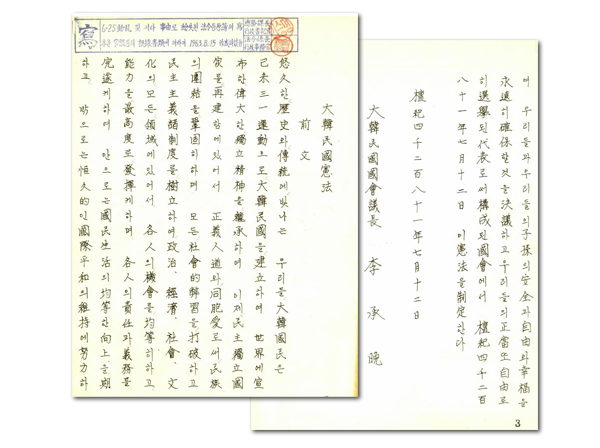 寫
大韓民國憲法
前文
悠久한 歷史와 傳統에 빛나는 우리들 大韓國民은
己未三一運動으로 大韓民國을 建立하여 世界에 宣
布한 偉大한 獨立精神을 繼承하여 이제 民主獨立國
家를 再建함에 있어서 正義人道와 同胞愛로써 民族
의 團結을 鞏固히하며 모든 社會的弊習을 打破하고
民主主義諸制度를 樹立하여 政治、經濟、社會、文
化의 모든 領域에 있어서 各人의 機會를 均等히 하고
能力을 最高度로 發揮케하며 各人의 責任과 義務를
完遂케하여 안으로는 國民生活의 均等한 向上을 期
하고 밖으로는 恒久的인 國際平和의 維持에 努力하
여 우리들과 우리들의 子孫의 安全과 自由와 幸福을
永遠히 確保할것을 決議하고 우리들의 正當또自由로
히 選擧된 代表로써 構成된 國會에서 檀紀四千二百
八十一年七月十二日 이 憲法을 制定한다
檀紀四千二百八十一年七月十二日
大韓民國國會議長 李承晩
3